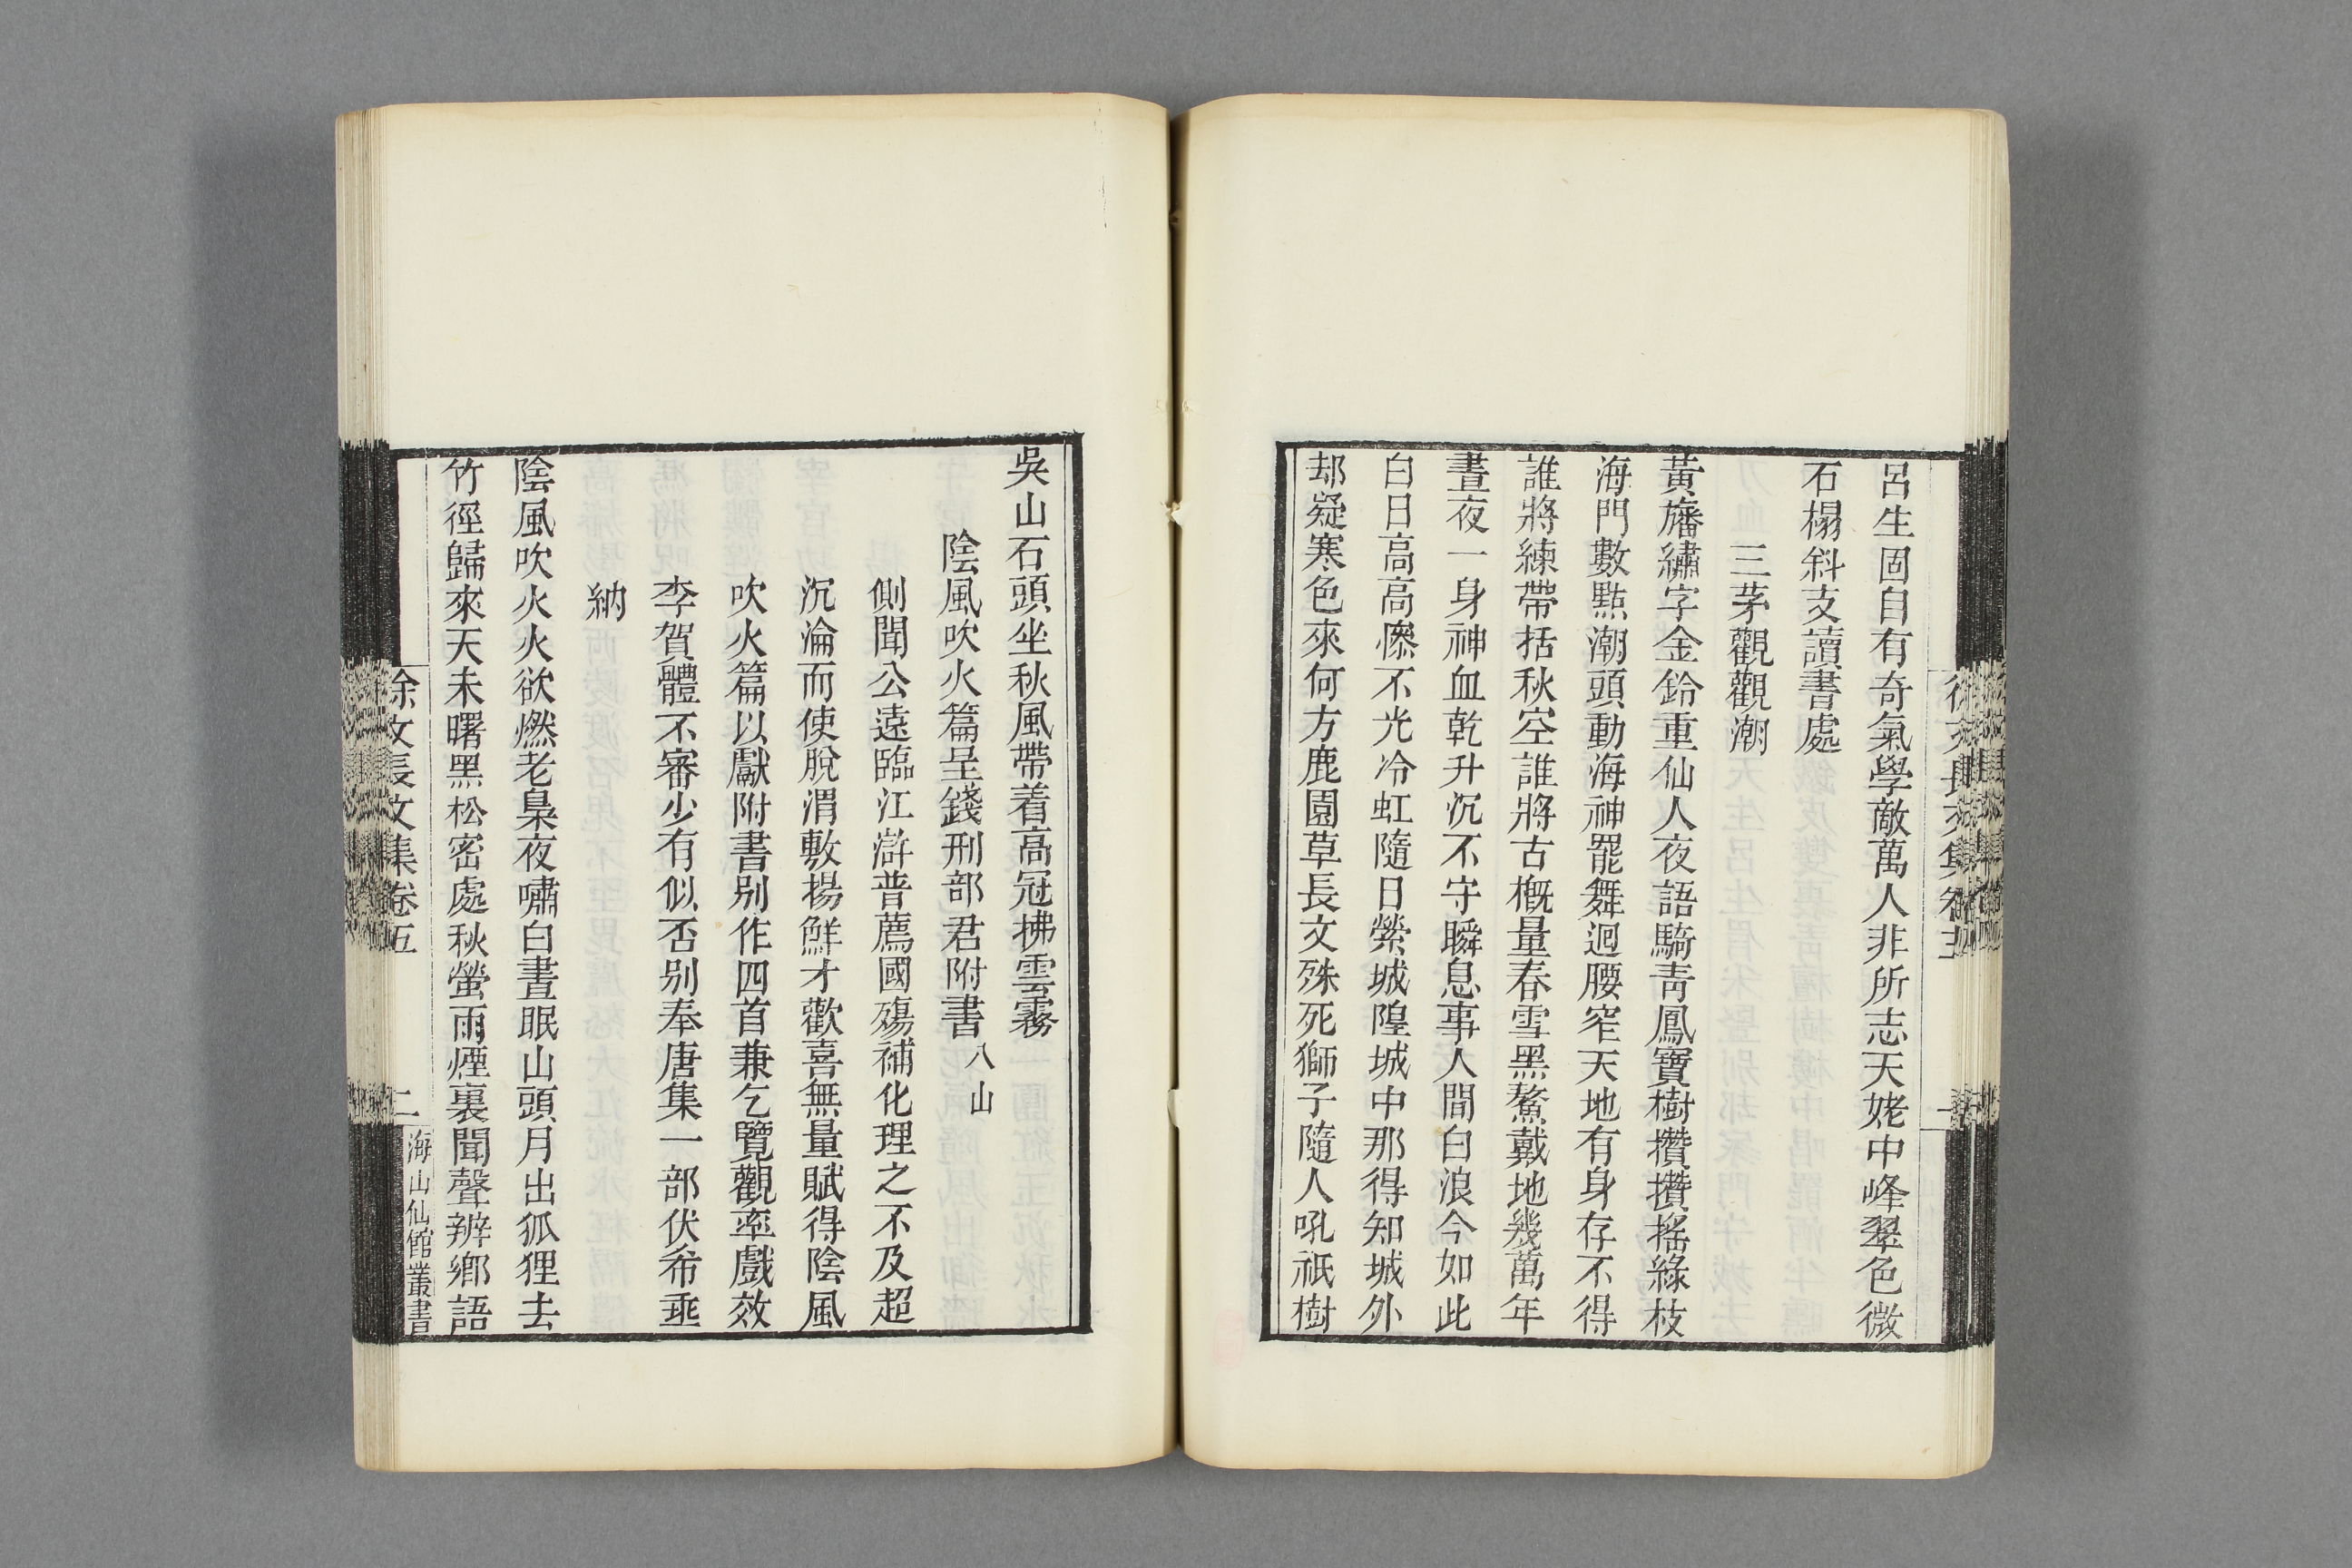 呂生固自有奇氣學敵萬人非所志天姥中峰翠色微
石榻斜支讀書處
三茅觀觀潮
黃旛繡字金鈴重仙人夜語騎靑鳳寶樹攢攢搖綠枝
海門數點潮頭動海神罷舞迴腰窄天地有身存不得
誰將練帶括秋空誰將古槪量春雪黑鰲戴地幾萬年
晝夜一身神血乾升沉不守瞬息事人間白浪今如此
白日高高慘不光冷虹隨日縈城隍城中那得知城外
却疑寒色來何方鹿園草長文殊死獅子隨人吼祇樹
吳山石頭坐秋風帶着高冠拂雲霧
陰風吹火篇呈錢刑部君附書八山
側聞公遠臨江滸普薦國殤補化理之不及超
沉淪而使脫渭敷揚鮮才歡喜無量賦得陰風
吹火篇以獻附書别作四首兼乞覽觀率戲效
李賀體不審少有似否别奉唐集一部伏希垂
納
陰風吹火火欲燃老梟夜嘯白晝眠山頭月出狐狸去
竹徑歸來天未曙黑松密處秋螢雨煙裏聞聲辨鄉語
徐文長文集卷五
二
海山仙館叢書